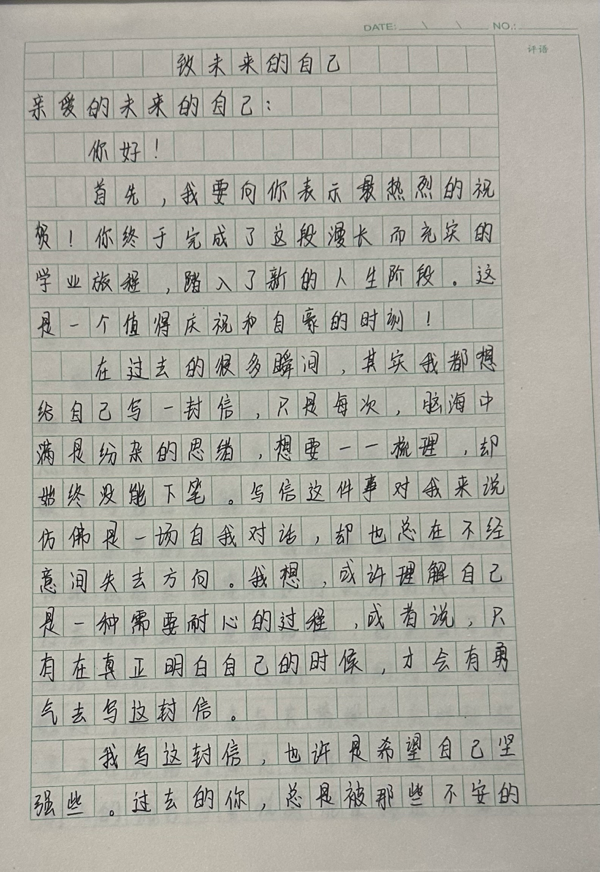 DATE: \ \ NO.:
评语
致未来的自己
亲爱的未来的自己：
你好！
首先，我要向你表示最热烈的祝
贺！你终于完成了这段漫长而充实的
学业旅程，踏入了新的人生阶段。这
是一个值得庆祝和自豪的时刻！
在过去的很多瞬间，其实我都想
给自己写一封信，只是每次，脑海中
满是纷杂的思绪，想要一一梳理，却
始终没能下笔。写信这件事对我来说
仿佛是一场自我对话，却也总在不经
意间失去方向。我想，或许理解自己
是一种需要耐心的过程，或者说，只
有在真正明白自己的时候，才会有勇
气去写这封信。
我写这封信，也许是希望自己坚
强些。过去的你，总是被那些不安的